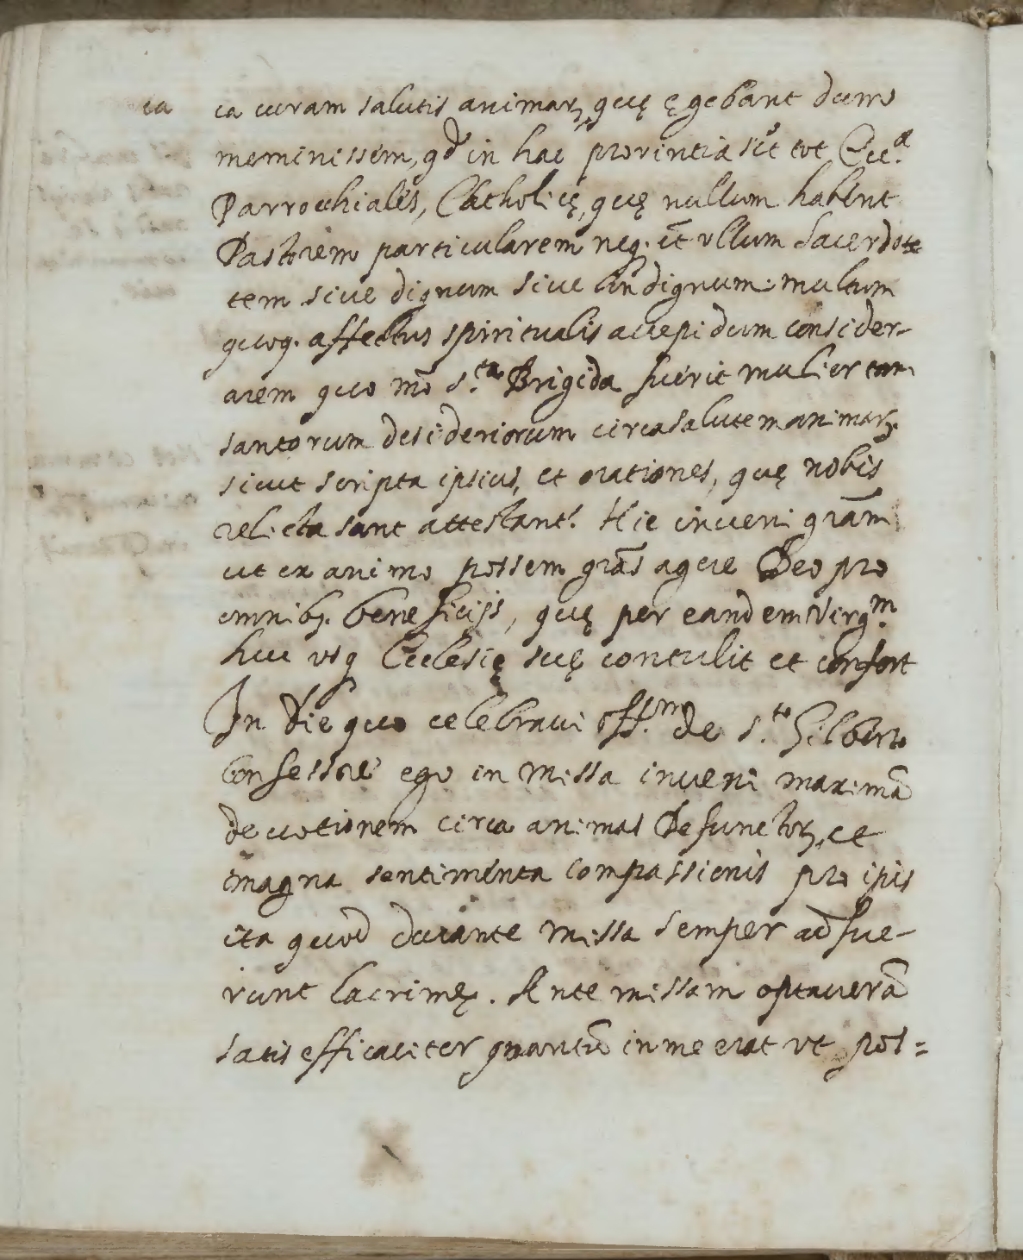 ca ca curam salutis animarꝫ quę ęgebant dum
meminissem, qd̃ in hac provintia sũt tot Ecc.ᵃ
Parrochiales, Catholicę, quę nullum habent
Pastorem particularem neq. et̃ vllum Sacerdote
tem siue dignum siue indignum: multum
quoq. affectus spiritualis accepi dum consider-
arem quo mõ S.ᵗᵃ Brigida fuerit mulier tam
santorum desideriorum circa salutem animarꝫ.
sicut scripta ipsius, et orationes, quę nobis
relicta sunt attestant.ʳ Hic inueni grãm
ut ex animo possem grãs agere Deo pro
omnibꝫ. beneficijs, quę per eandem Virg.ᵐ
huc vsq Ecclesię suę contulit et confert
In die quo celebraui off.ᵐ de S.ᵗᵒ Gilberto
Confessore ego in missa inueni maximã
deuotionem circa animas Defunctorꝫ, et
magna sentimenta compassionis pro ipis
ita quod durante missa semper adfue-
runt lacrimę. Ante missam optauerã
satis efficaciter quantũ in me erat vt pos=